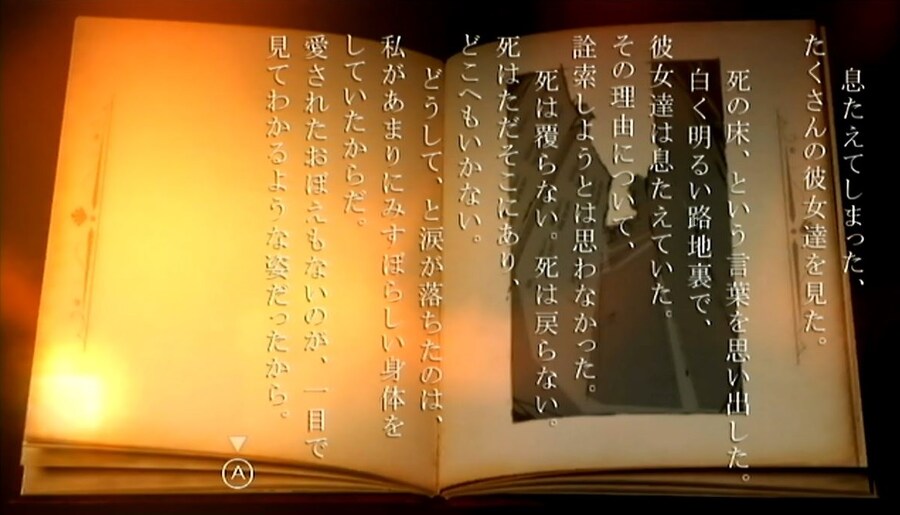 息たえてしまった、
たくさんの彼女達を見た。
死の床、という言葉を思い出した。
白く明るい路地裏で、
彼女達は息たえていた。
その理由について、
詮索しようとは思わなかった。
死は覆らない。死は戻らない。
死はただそこにあり、
どこへもいかない。
どうして、と涙が落ちたのは、
私があまりにみすぼらしい身体を
していたからだ。
愛されたおぼえもないのが、一目で
見てわかるような姿だったから。
A